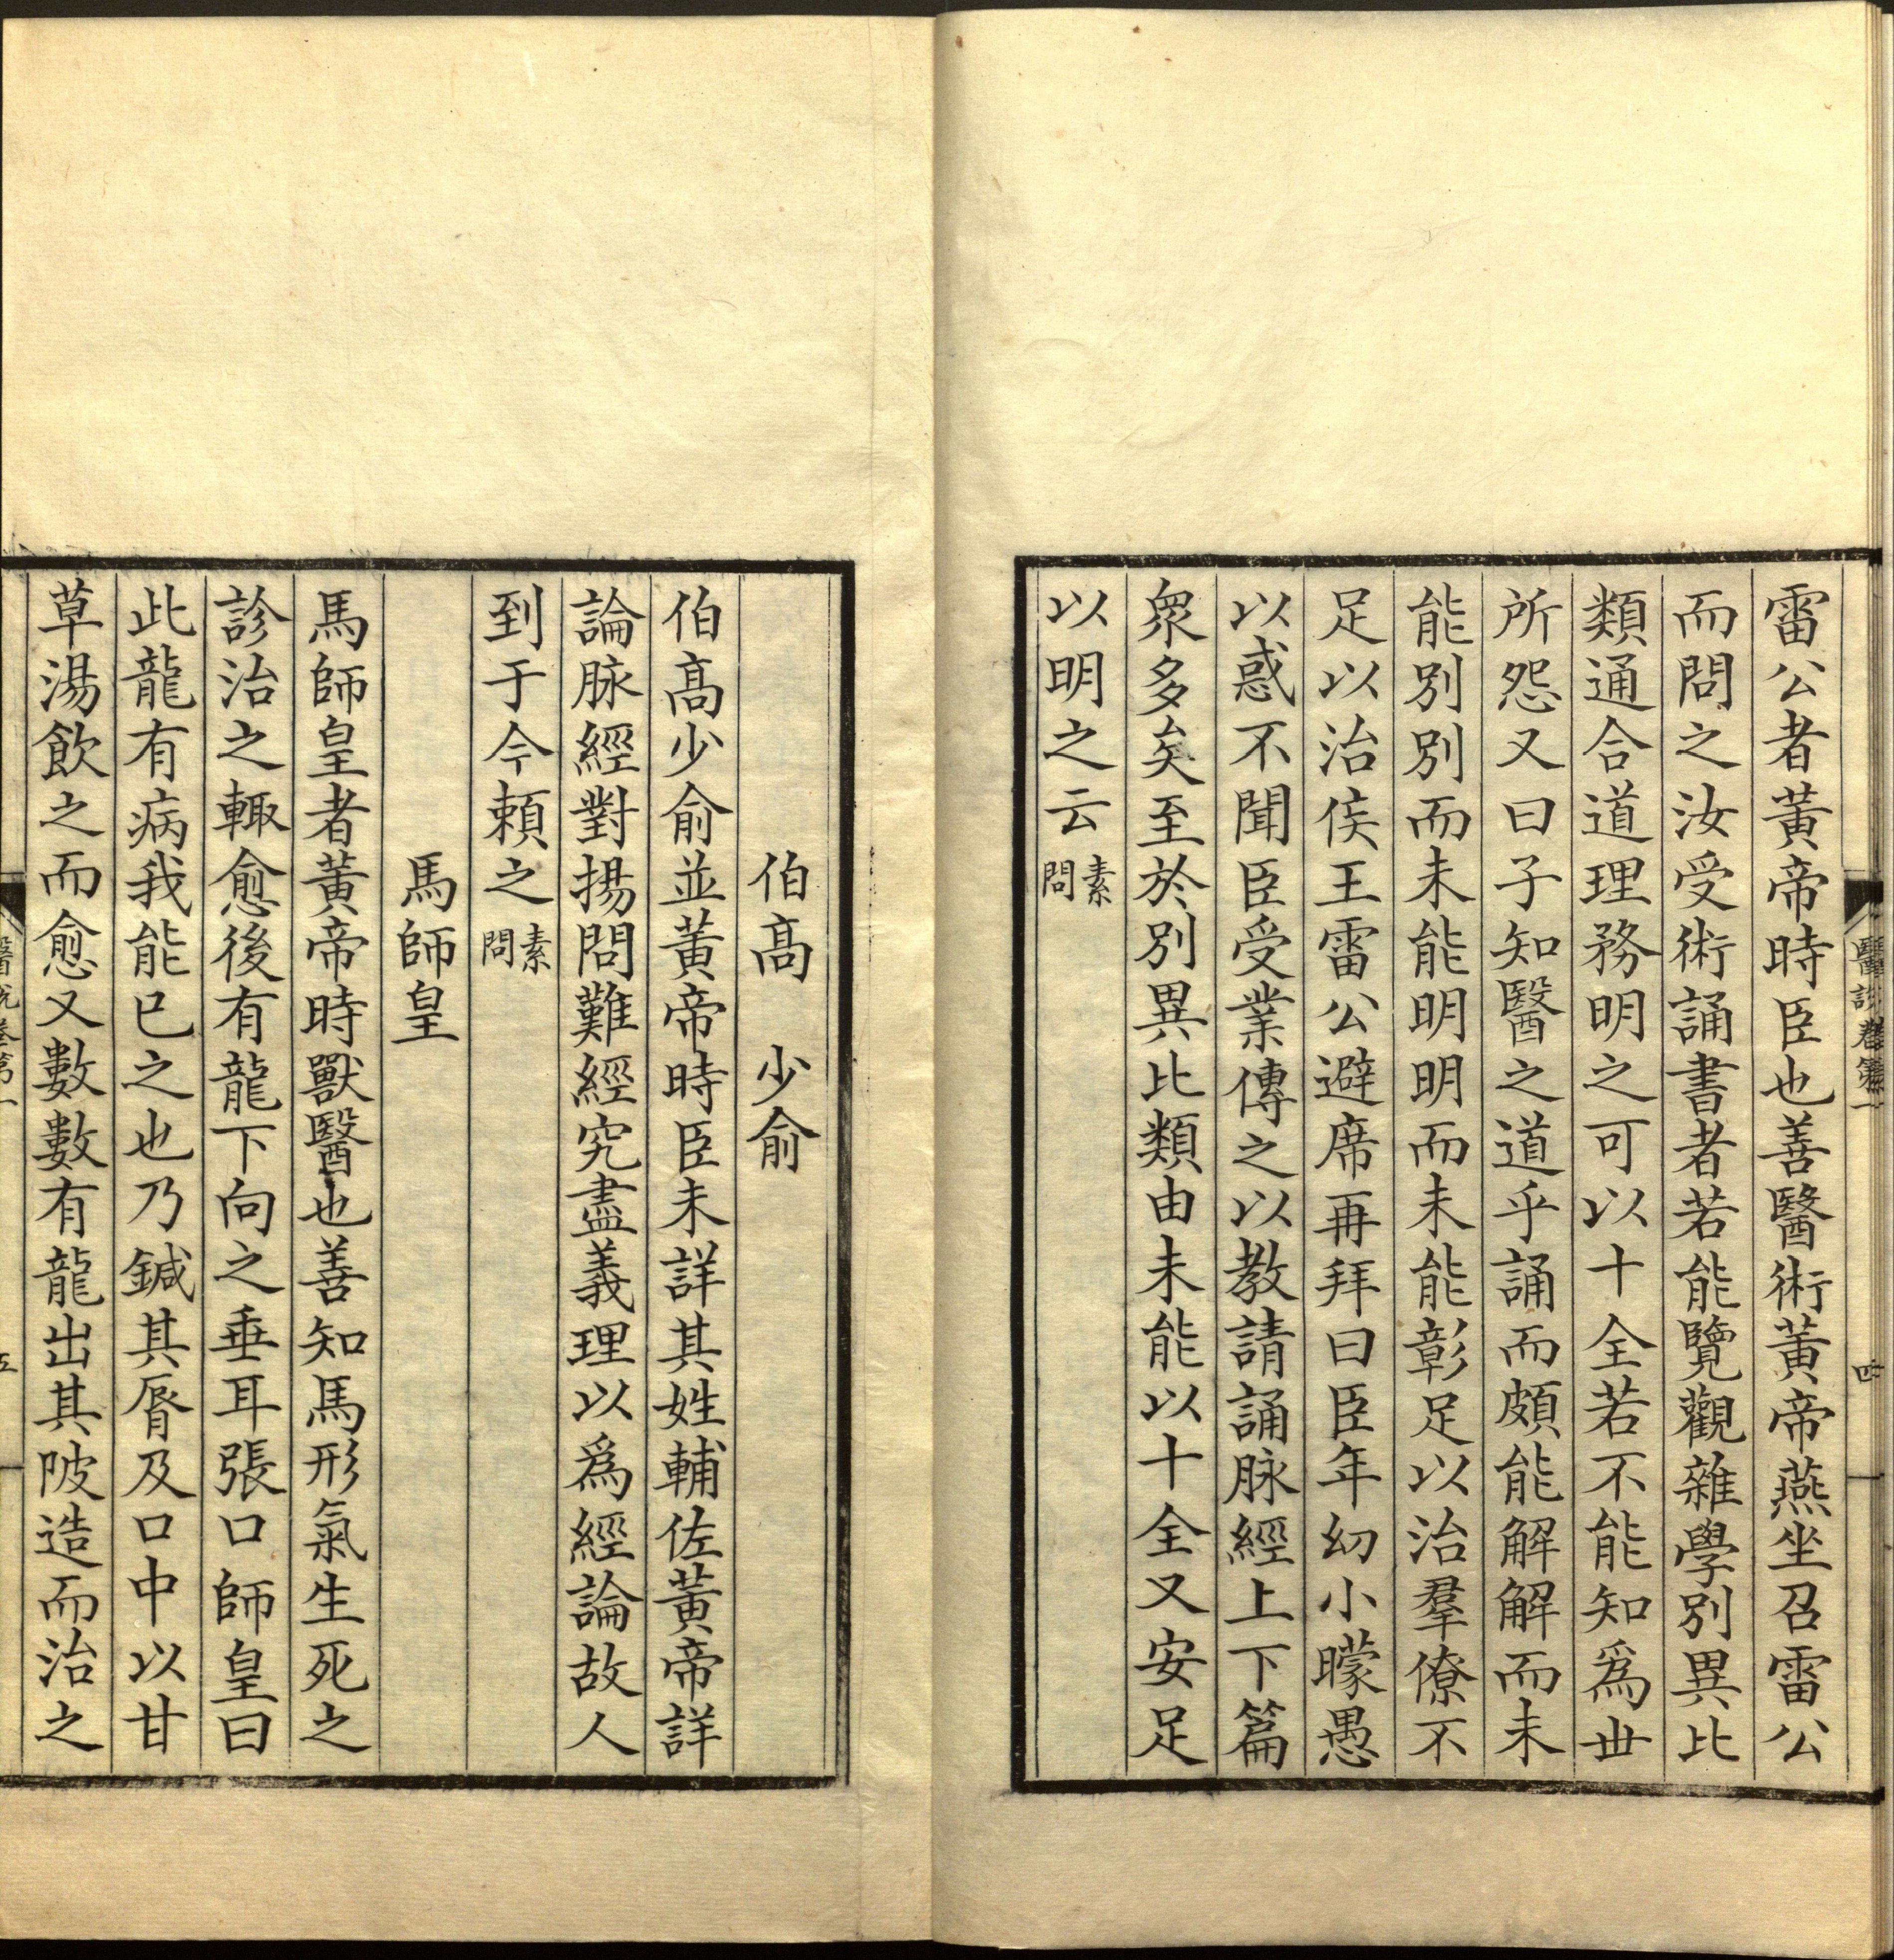 雷公者黃帝時臣也善醫術黃帝燕坐召雷公
而問之汝受術誦書者若能覽觀雜學別異比
類通合道理務明之可以十全若不能知爲世
所怨又曰子知醫之道乎誦而頗能解解而未
能別別而未能明明而未能彰足以治羣僚不
足以治侯王雷公避席再拜曰臣年幼小曚愚
以惑不聞臣受業傳之以教請誦脉經上下篇
衆多矣至於別異比類由未能以十全又安足
以明之云素問
醫說卷第一
四
伯髙 少俞
伯髙少俞並黃帝時臣未詳其姓輔佐黃帝詳
論脉經對揚問難經究盡義理以爲經論故人
到于今賴之素問
馬師皇
馬師皇者黃帝時獸醫也善知馬形氣生死之
診治之輙愈後有龍下向之垂耳張口師皇曰
此龍有病我能已之也乃鍼其脣及口中以甘
草湯飲之而愈又數數有龍出其陂造而治之
醫說卷第一
五